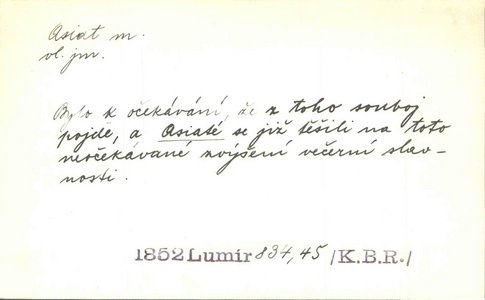 Asiat m.
vl. jm.
Bylo k očekávání, že z toho souboj
pojde, a Asiaté se již těšili na toto
neočekávané zvýšení večerní slav-
nosti.
1852 Lumír 834,45 /K.B.R./